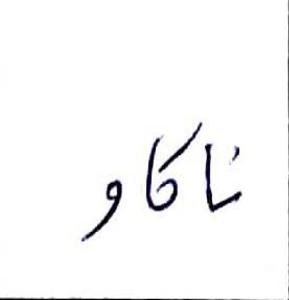 ناکاو